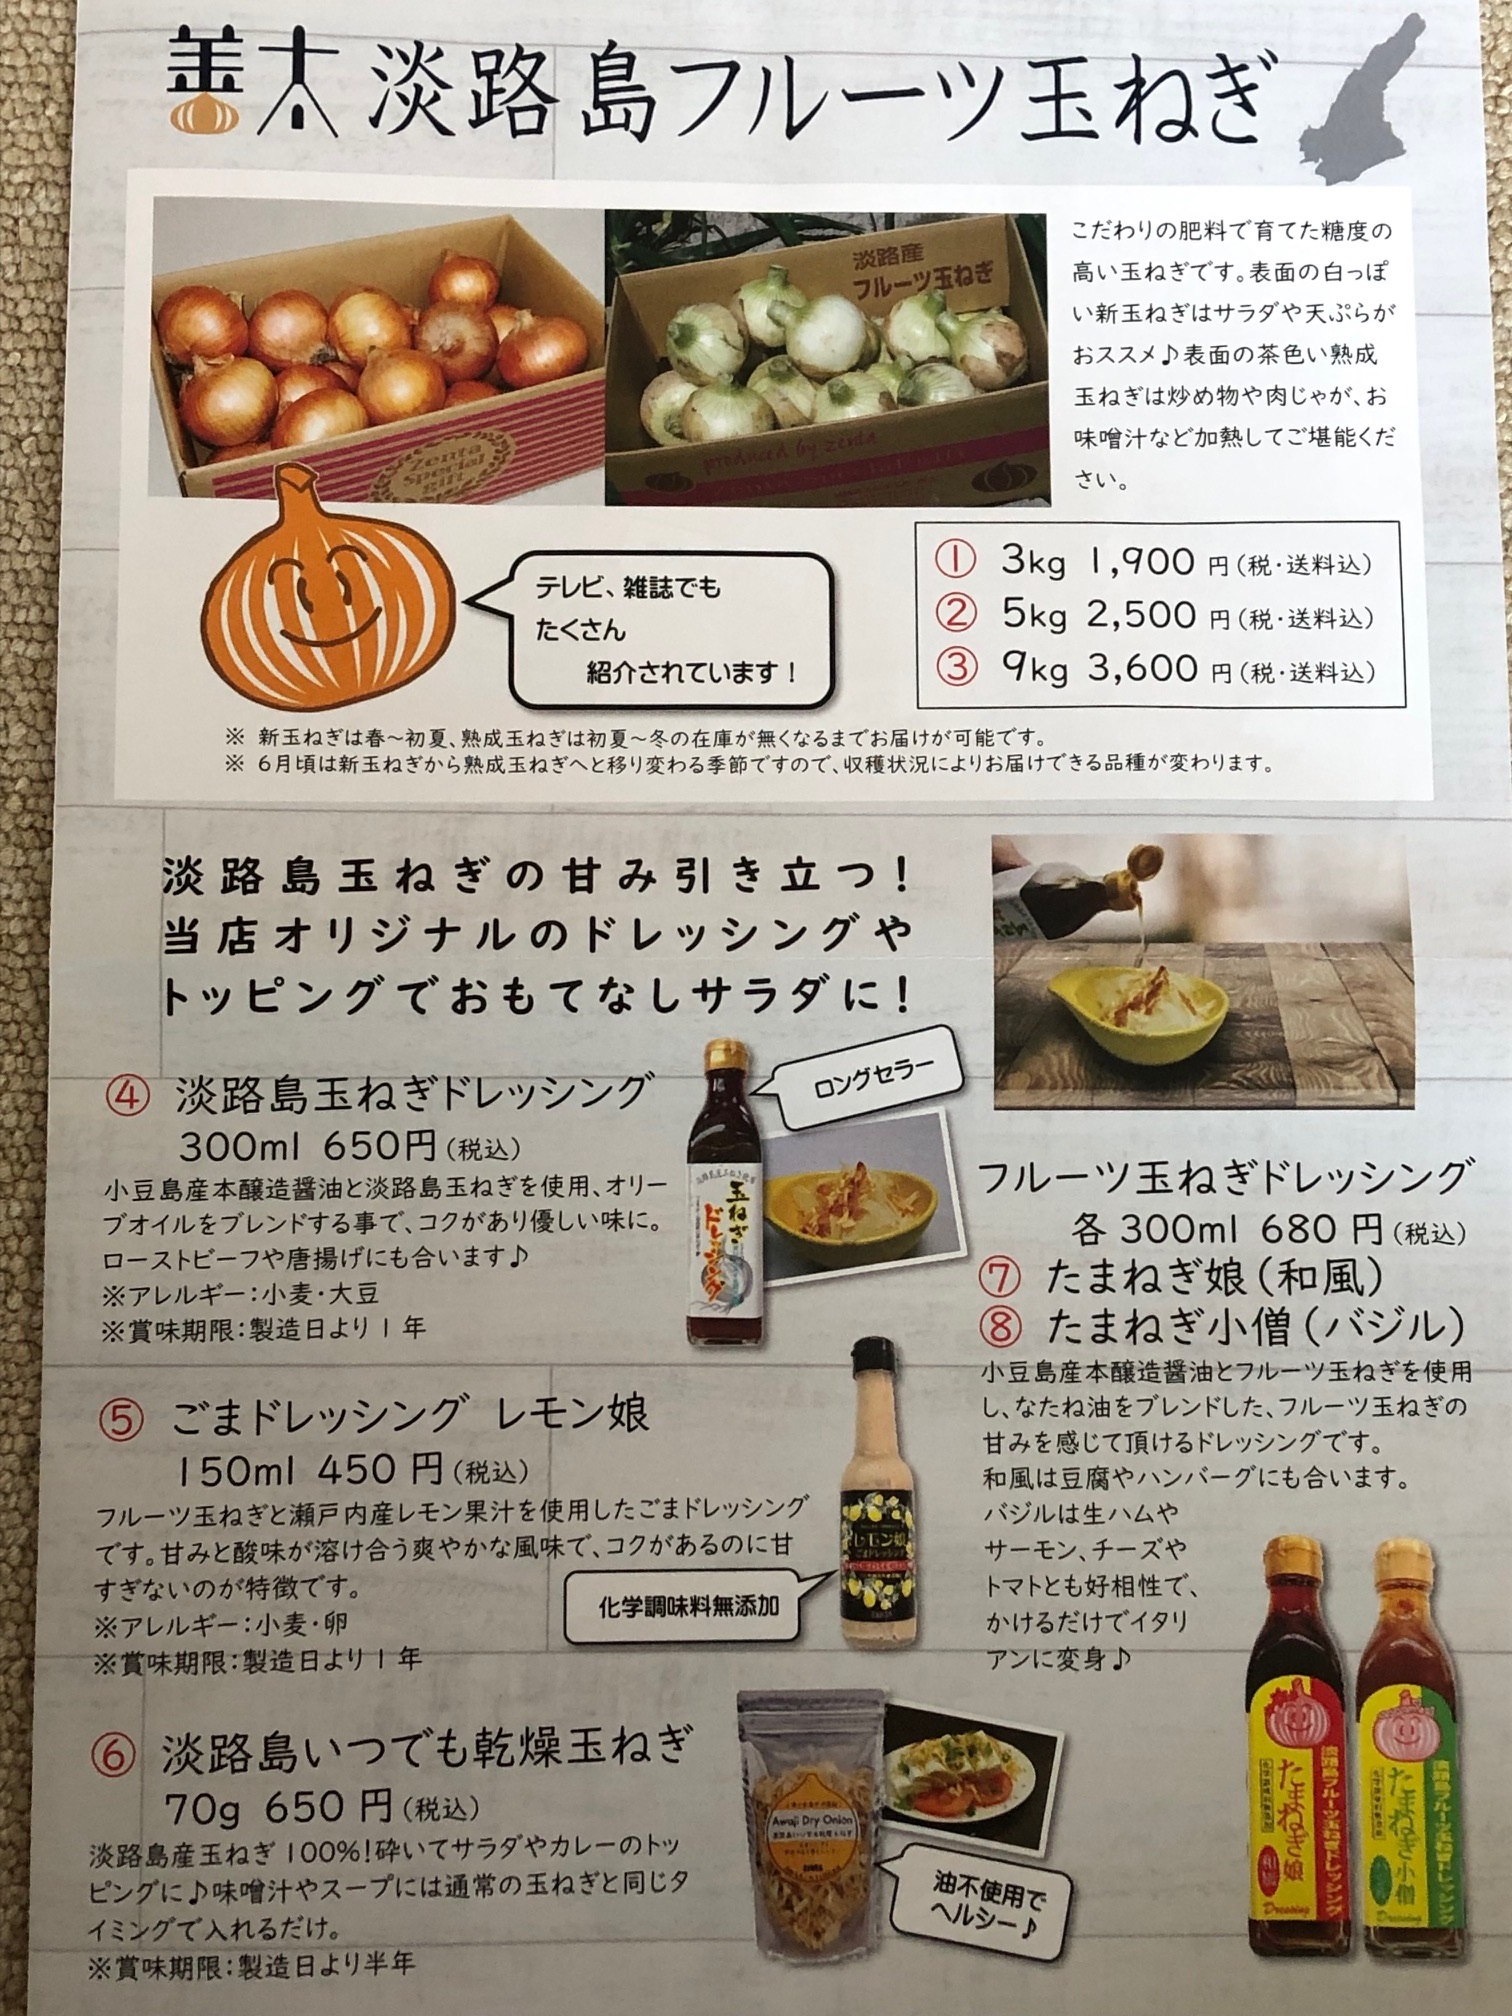 善太 淡路島フルーツ玉ねぎ
淡路産
フルーツ玉ねぎ
Zenta
Special
Gift
produced by zenta
こだわりの肥料で育てた糖度の
高い玉ねぎです。表面の白っぽ
い新玉ねぎはサラダや天ぷらが
おススメ♪表面の茶色い熟成
玉ねぎは炒め物や肉じゃが、お
味噌汁など加熱してご堪能くだ
さい。
テレビ、雑誌でも
たくさん
紹介されています！
① 3kg 1,900 円(税・送料込)
② 5kg 2,500 円(税・送料込)
③ 9kg 3,600 円(税・送料込)
※ 新玉ねぎは春～初夏、熟成玉ねぎは初夏～冬の在庫が無くなるまでお届けが可能です。
※ 6月頃は新玉ねぎから熟成玉ねぎへと移り変わる季節ですので、収穫状況によりお届けできる品種が変わります。
淡路島玉ねぎの甘み引き立つ！
当店オリジナルのドレッシングや
トッピングでおもてなしサラダに！
④ 淡路島玉ねぎドレッシング
300ml 650円(税込)
小豆島産本醸造醤油と淡路島玉ねぎを使用、オリー
ブオイルをブレンドする事で、コクがあり優しい味に。
ローストビーフや唐揚げにも合います♪
※アレルギー：小麦・大豆
※賞味期限：製造日より1年
ロングセラー
玉ねぎ
ドレッシング
⑤ ごまドレッシング レモン娘
150ml 450 円(税込)
フルーツ玉ねぎと瀬戸内産レモン果汁を使用したごまドレッシング
です。甘みと酸味が溶け合う爽やかな風味で、コクがあるのに甘
すぎないのが特徴です。
※アレルギー：小麦・卵
※賞味期限：製造日より1年
化学調味料無添加
レモン娘
ごまドレッシング
⑥ 淡路島いつでも乾燥玉ねぎ
70g 650 円(税込)
淡路島産玉ねぎ 100%！砕いてサラダやカレーのトッ
ピングに♪味噌汁やスープには通常の玉ねぎと同じタ
イミングで入れるだけ。
※賞味期限：製造日より半年
Awaji Dry Onion
淡路島いつでも乾燥玉ねぎ
油不使用で
ヘルシー♪
フルーツ玉ねぎドレッシング
各 300ml 680 円(税込)
⑦ たまねぎ娘(和風)
⑧ たまねぎ小僧(バジル)
小豆島産本醸造醤油とフルーツ玉ねぎを使用
し、なたね油をブレンドした、フルーツ玉ねぎの
甘みを感じて頂けるドレッシングです。
和風は豆腐やハンバーグにも合います。
バジルは生ハムや
サーモン、チーズや
トマトとも好相性で、
かけるだけでイタリ
アンに変身♪
淡路島フルーツ玉ねぎドレッシング
たまねぎ娘
和風
Dressing
淡路島フルーツ玉ねぎドレッシング
たまねぎ小僧
Dressing